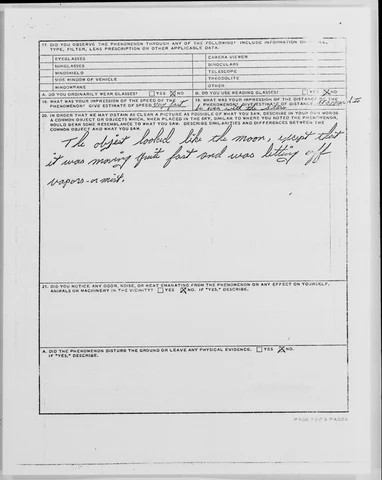 17. DID YOU OBSERVE THE PHENOMENON THROUGH ANY OF THE FOLLOWING? INCLUDE INFORMATION ON
TYPE, FILTER, LENS PRESCRIPTION OR OTHER APPLICABLE DATA.
EYEGLASSES CAMERA VIEWER
SUNGLASSES BINOCULARS
WINDSHIELD TELESCOPE
SIDE WINDOW OF VEHICLE THEODOLITE
WINDOWPANE OTHER
A. DO YOU ORDINARILY WEAR GLASSES? YES NO B. DO YOU USE READING GLASSES? YES NO
18. WHAT WAS YOUR IMPRESSION OF THE SPEED OF THE PHENOMENON? GIVE ESTIMATE OF SPEED fast
19. WHAT WAS YOUR IMPRESSION OF THE DISTANCE OF THE PHENOMENON? ESTIMATE OF DISTANCE the stars
20. IN ORDER THAT WE MAY OBTAIN AS CLEAR A PICTURE AS POSSIBLE OF WHAT YOU SAW, DESCRIBE IN YOUR OWN WORDS
A COMMON OBJECT OR OBJECTS WHICH, WHEN PLACED IN THE SKY, SIMILAR TO WHERE YOU NOTED THE PHENOMENON,
WOULD BEAR SOME RESEMBLANCE TO WHAT YOU SAW. DESCRIBE SIMILARITIES AND DIFFERENCES BETWEEN THE
COMMON OBJECT AND WHAT YOU SAW.
The object looked like the moon, except that
it was moving quit fast and was letting off
vapors or mist.
21. DID YOU NOTICE ANY ODOR, NOISE, OR HEAT EMANATING FROM THE PHENOMENON OR ANY EFFECT ON YOURSELF,
ANIMALS OR MACHINERY IN THE VICINITY? YES NO. IF "YES," DESCRIBE.
A. DID THE PHENOMENON DISTURB THE GROUND OR LEAVE ANY PHYSICAL EVIDENCE. YES NO.
IF "YES," DESCRIBE.